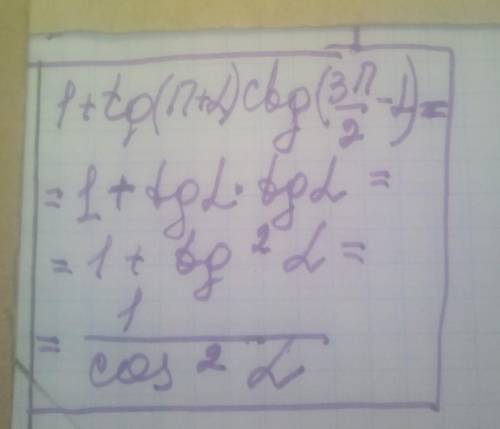 1+tg(π+α)ctg(3π/2-α)=
=1+tgα·tgα=
=1+tg²α=
=1/cos²α